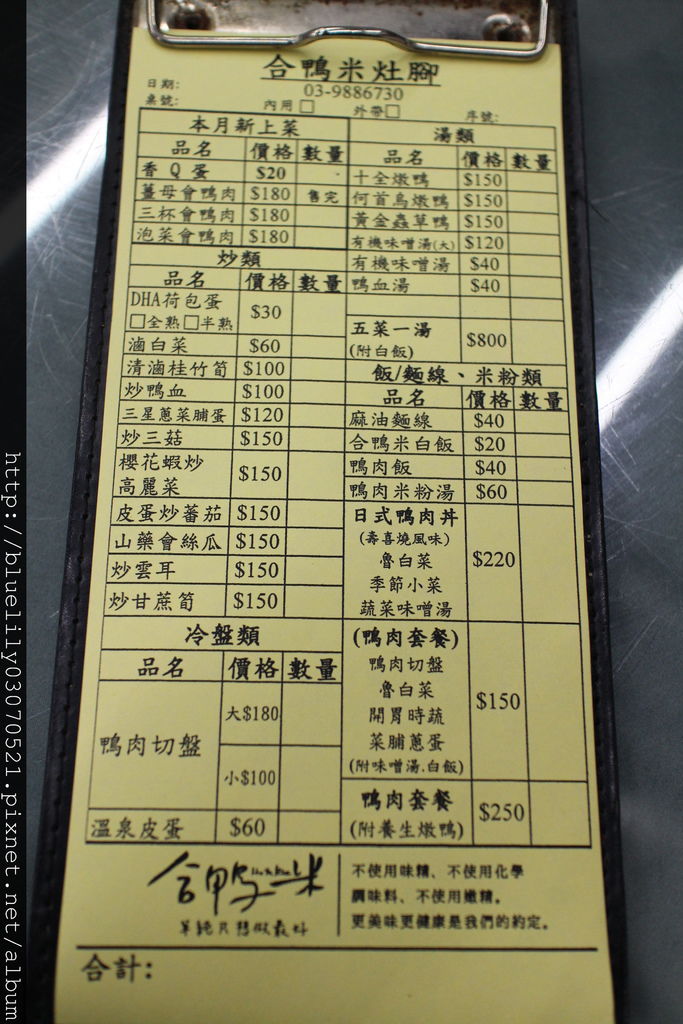 合鴨米灶腳
03-9886730
日期:
桌號: 內用□ 外帶□ 序號:
本月新上菜
品名 價格 數量
香Q蛋 $20
薑母會鴨肉 $180 售完
三杯會鴨肉 $180
泡菜會鴨肉 $180
炒類
品名 價格 數量
DHA荷包蛋
□全熟□半熟
$30
滷白菜 $60
清滷桂竹筍 $100
炒鴨血 $100
三星蔥菜脯蛋 $120
炒三菇 $150
櫻花蝦炒
高麗菜
$150
皮蛋炒蕃茄 $150
山藥會絲瓜 $150
炒雲耳 $150
炒甘蔗筍 $150
冷盤類
品名 價格 數量
鴨肉切盤
大$180
小$100
溫泉皮蛋 $60
湯類
品名 價格 數量
十全燉鴨 $150
何首烏燉鴨 $150
黃金蟲草鴨 $150
有機味噌湯(大) $120
有機味噌湯 $40
鴨血湯 $40
五菜一湯
(附白飯)
$800
飯/麵線、米粉類
品名 價格 數量
麻油麵線 $40
合鴨米白飯 $20
鴨肉飯 $40
鴨肉米粉湯 $60
日式鴨肉丼
(壽喜燒風味)
魯白菜
季節小菜
蔬菜味噌湯
$220
(鴨肉套餐)
鴨肉切盤
魯白菜
開胃時蔬
菜脯蔥蛋
(附味噌湯.白飯)
$150
鴨肉套餐
(附養生燉鴨)
$250
合鴨米
單純只想做最好
不使用味精、不使用化學
調味料、不使用嫩精。
更美味更健康是我們的約定。
合計:
http://bluelily03070521.pixnet.net/album